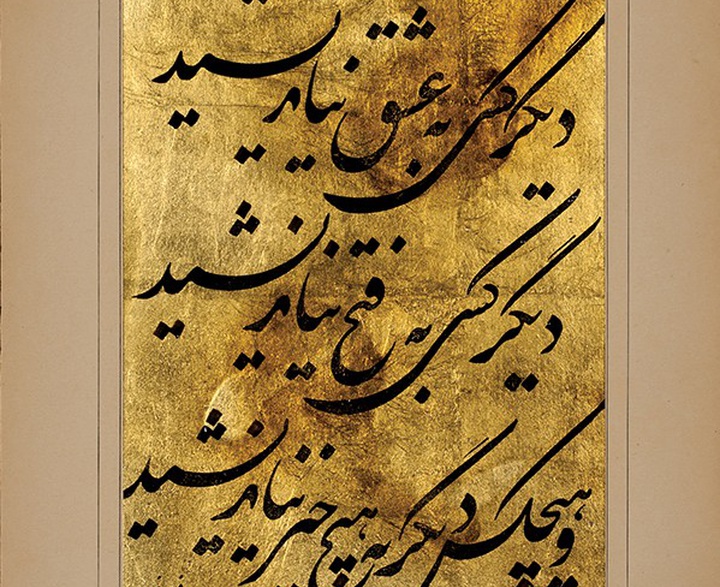 دیگر کسی به عشق نیندیشید
دیگر کسی به فتح نیندیشید
و هیچکس دیگر به هیچ چیز نیندیشید